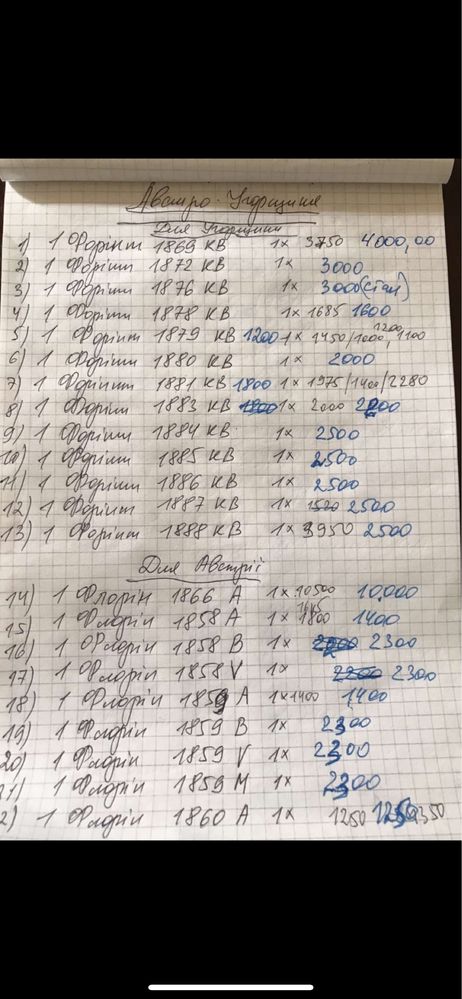 Австро-Угорщина
Для Угорщини
1) 1 Форінт 1869 КВ 1х 3750 4000,00
2) 1 Форінт 1872 КВ 1х 3000
3) 1 Форінт 1876 КВ 1х 3000 (стан)
4) 1 Форінт 1878 КВ 1х 1685 1600
5) 1 Форінт 1879 КВ 1200 1х 1450/1000, 1200, 1100
6) 1 Форінт 1880 КВ 1х 2000
7) 1 Форінт 1881 КВ 1800 1х 1975/1400/2280
8) 1 Форінт 1883 КВ 1800 1х 2000 2200
9) 1 Форінт 1884 КВ 1х 2500
10) 1 Форінт 1885 КВ 1х 2500
11) 1 Форінт 1886 КВ 1х 2500
12) 1 Форінт 1887 КВ 1х 1520 2500
13) 1 Форінт 1888 КВ 1х 3950 2500
Для Австрії
14) 1 Флорін 1866 А 1х 10500 10,000
15) 1 Флорін 1858 А 1х 1800 1400
16) 1 Флорін 1858 В 1х 2200 2300
17) 1 Флорін 1858 V 1х 2200 2300
18) 1 Флорін 1859 А 1х 1400 1,400
19) 1 Флорін 1859 В 1х 2300
20) 1 Флорін 1859 V 1х 2300
21) 1 Флорін 1859 М 1х 2300
2) 1 Флорін 1860 А 1х 1250 1250 1350